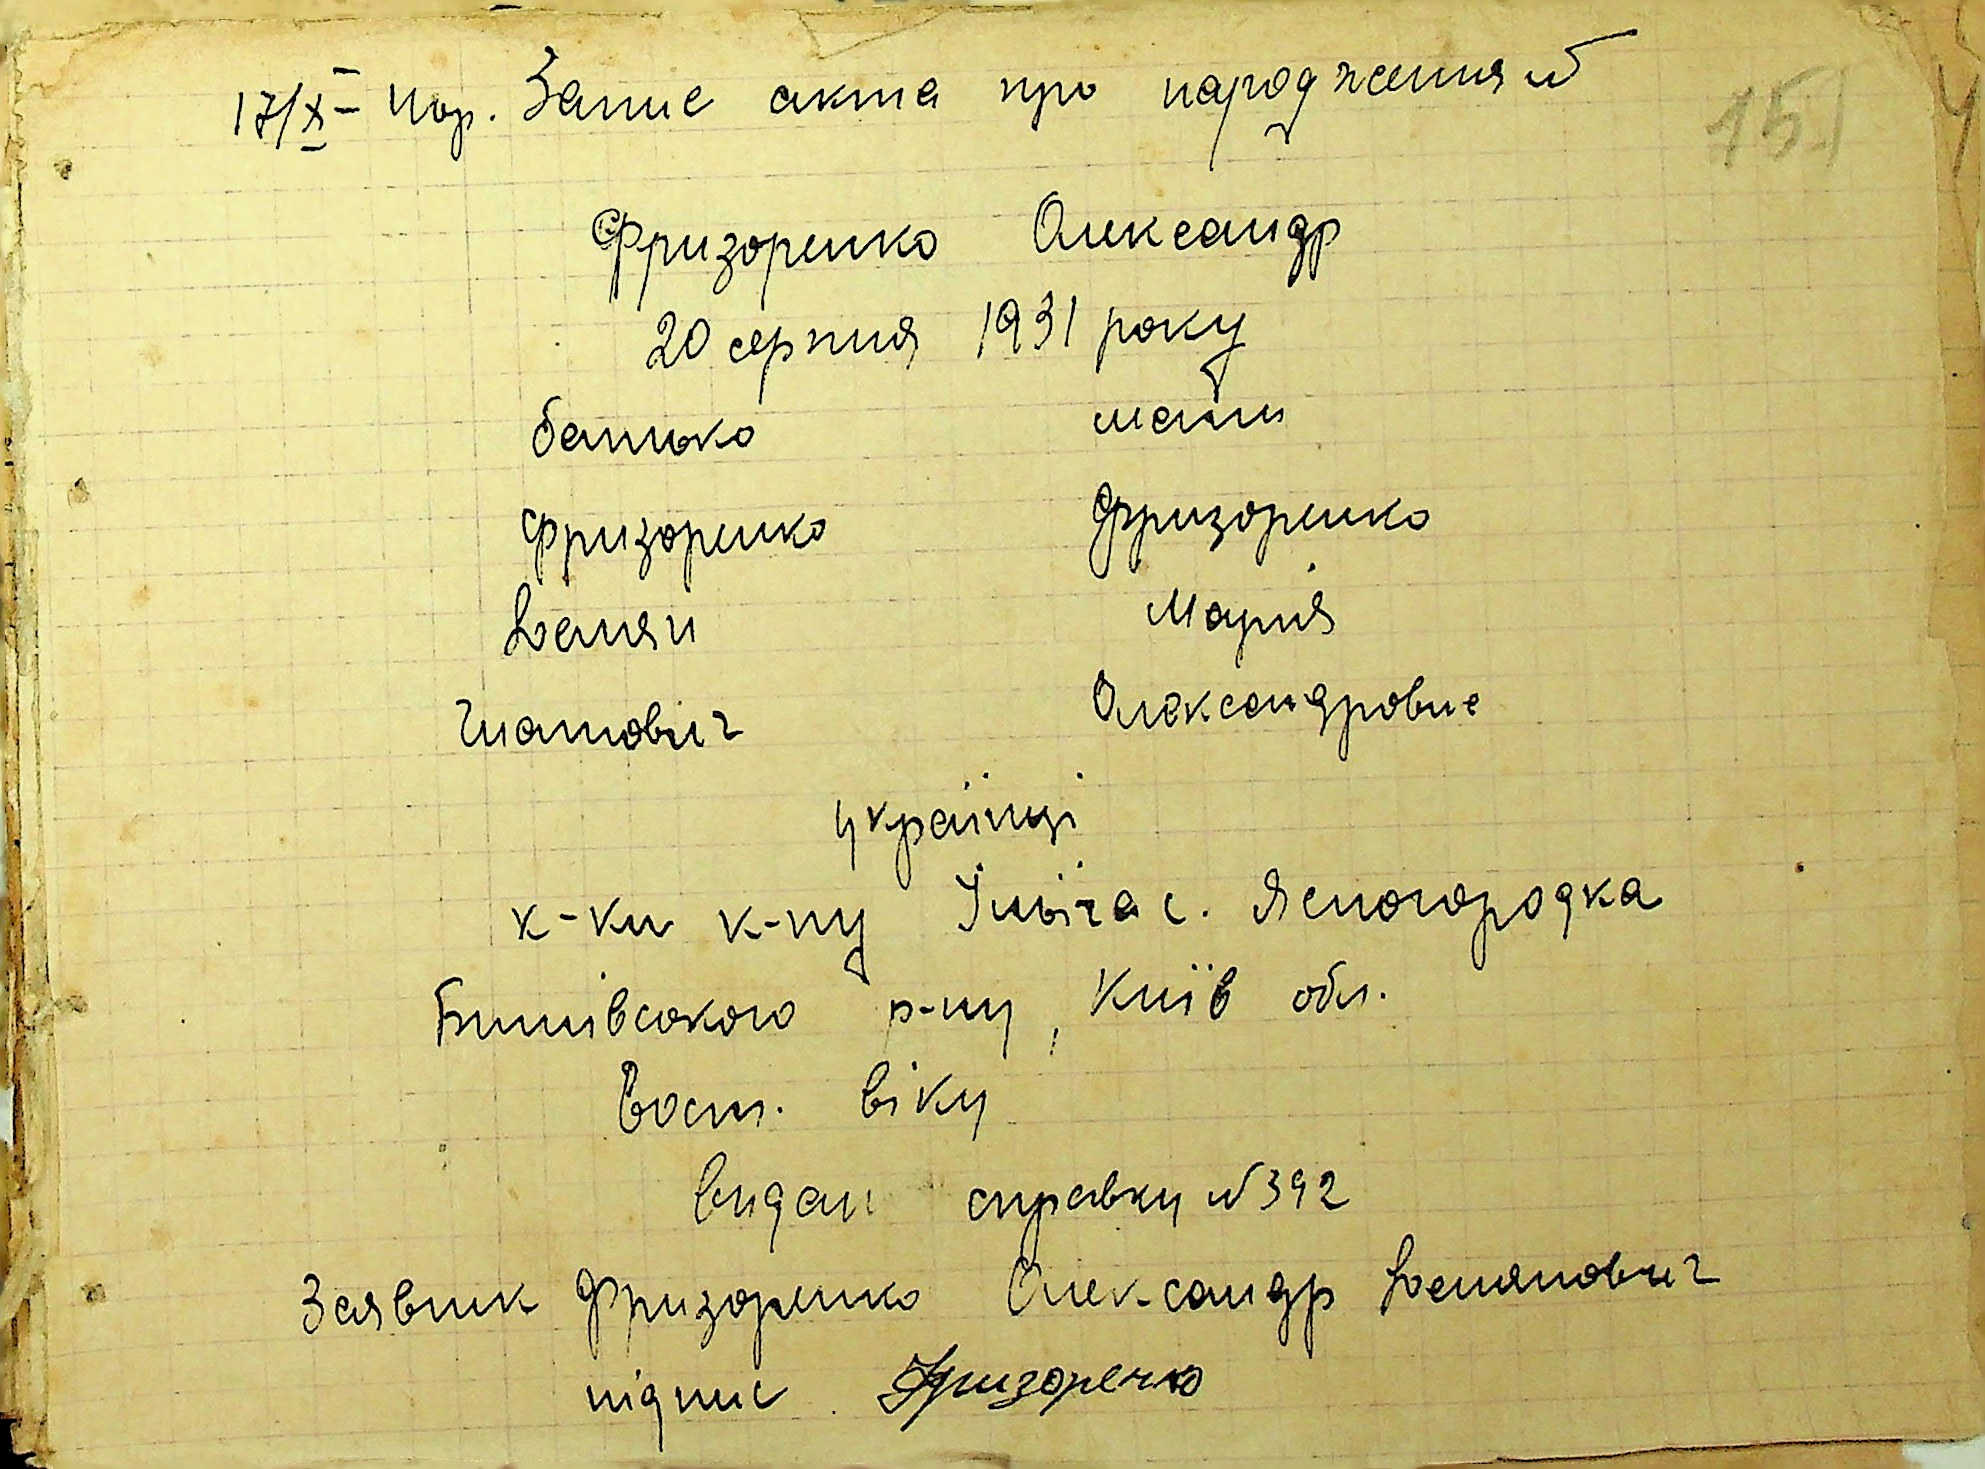 17/X - пор. Запис акта про народження №
151
Фризоренко Олександр
20 серпня 1931 року
батько мати
Фризоренко Фризоренко
Демян Марія
Гнатович Олександровна
українці
к-ки к-пу Ілліча с. Ясногородка
Бишівського р-ну, Київ обл.
Вост. віку
Видан справку №392
Заявник Фризоренко Олександр Демянович
підпис Фризоренко